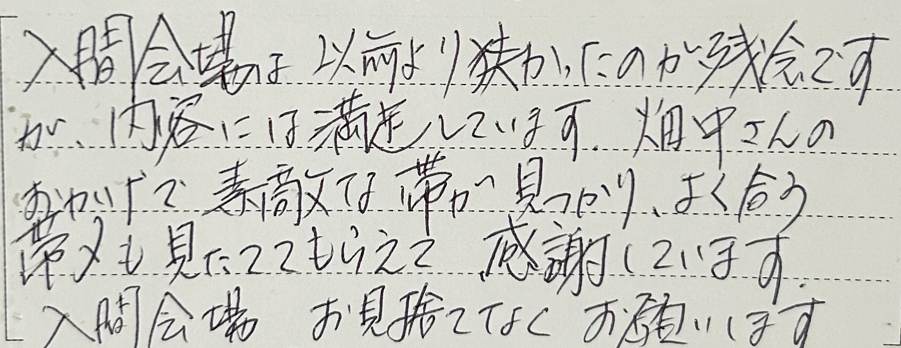 入間会場は以前より狭かったのが残念です
が、内容には満足しています。畑中さんの
おかげで素敵な帯が見つかり、よく合う
帯〆も見たててもらえて感謝しています。
入間会場 お見捨てなくお願いします